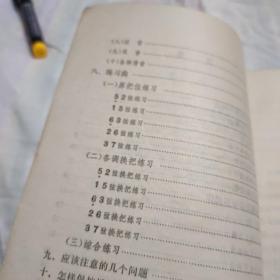 (八)滑音
(九)
(十)各种滑音
九、练习曲
(一)原把位练习
52弦练习
15弦练习
63弦练习
26弦练习
37弦练习
(二)各调换把练习
52弦换把练习
15弦换把练习
63弦换把练习
26弦换把练习
37弦换把练习
(三)综合练习
九、应该注意的几个问题
十、怎样保护